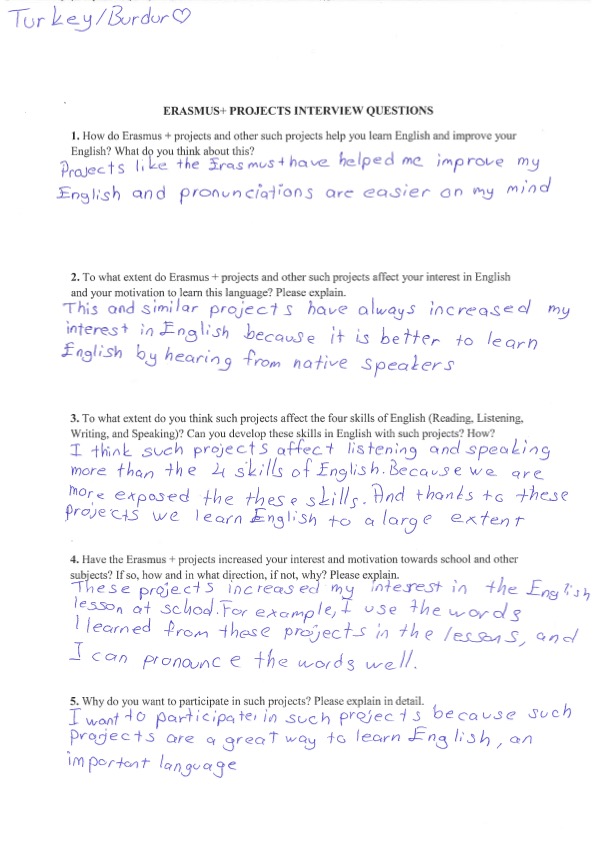 Turkey/Burdur♡
ERASMUS+ PROJECTS INTERVIEW QUESTIONS
1. How do Erasmus + projects and other such projects help you learn English and improve your
English? What do you think about this?
Projects like the Erasmus+have helped me improve my
English and pronunciations are easier on my mind
2. To what extent do Erasmus + projects and other such projects affect your interest in English
and your motivation to learn this language? Please explain.
This and similar projects have always increased my
interest in English because it is better to learn
English by hearing from native speakers
3. To what extent do you think such projects affect the four skills of English (Reading, Listening,
Writing, and Speaking)? Can you develop these skills in English with such projects? How?
I think such projects affect listening and speaking
more than the 4 skills of English. Because we are
more exposed the these skills. And thanks to these
projects we learn English to a large extent
4. Have the Erasmus + projects increased your interest and motivation towards school and other
subjects? If so, how and in what direction, if not, why? Please explain.
These projects increased my interest in the English
lesson at school. For example, I use the words
I learned from these projects in the lessons, and
I can pronounce the words well.
5. Why do you want to participate in such projects? Please explain in detail.
I want to participate in such projects because such
projects are a great way to learn English, an
important language